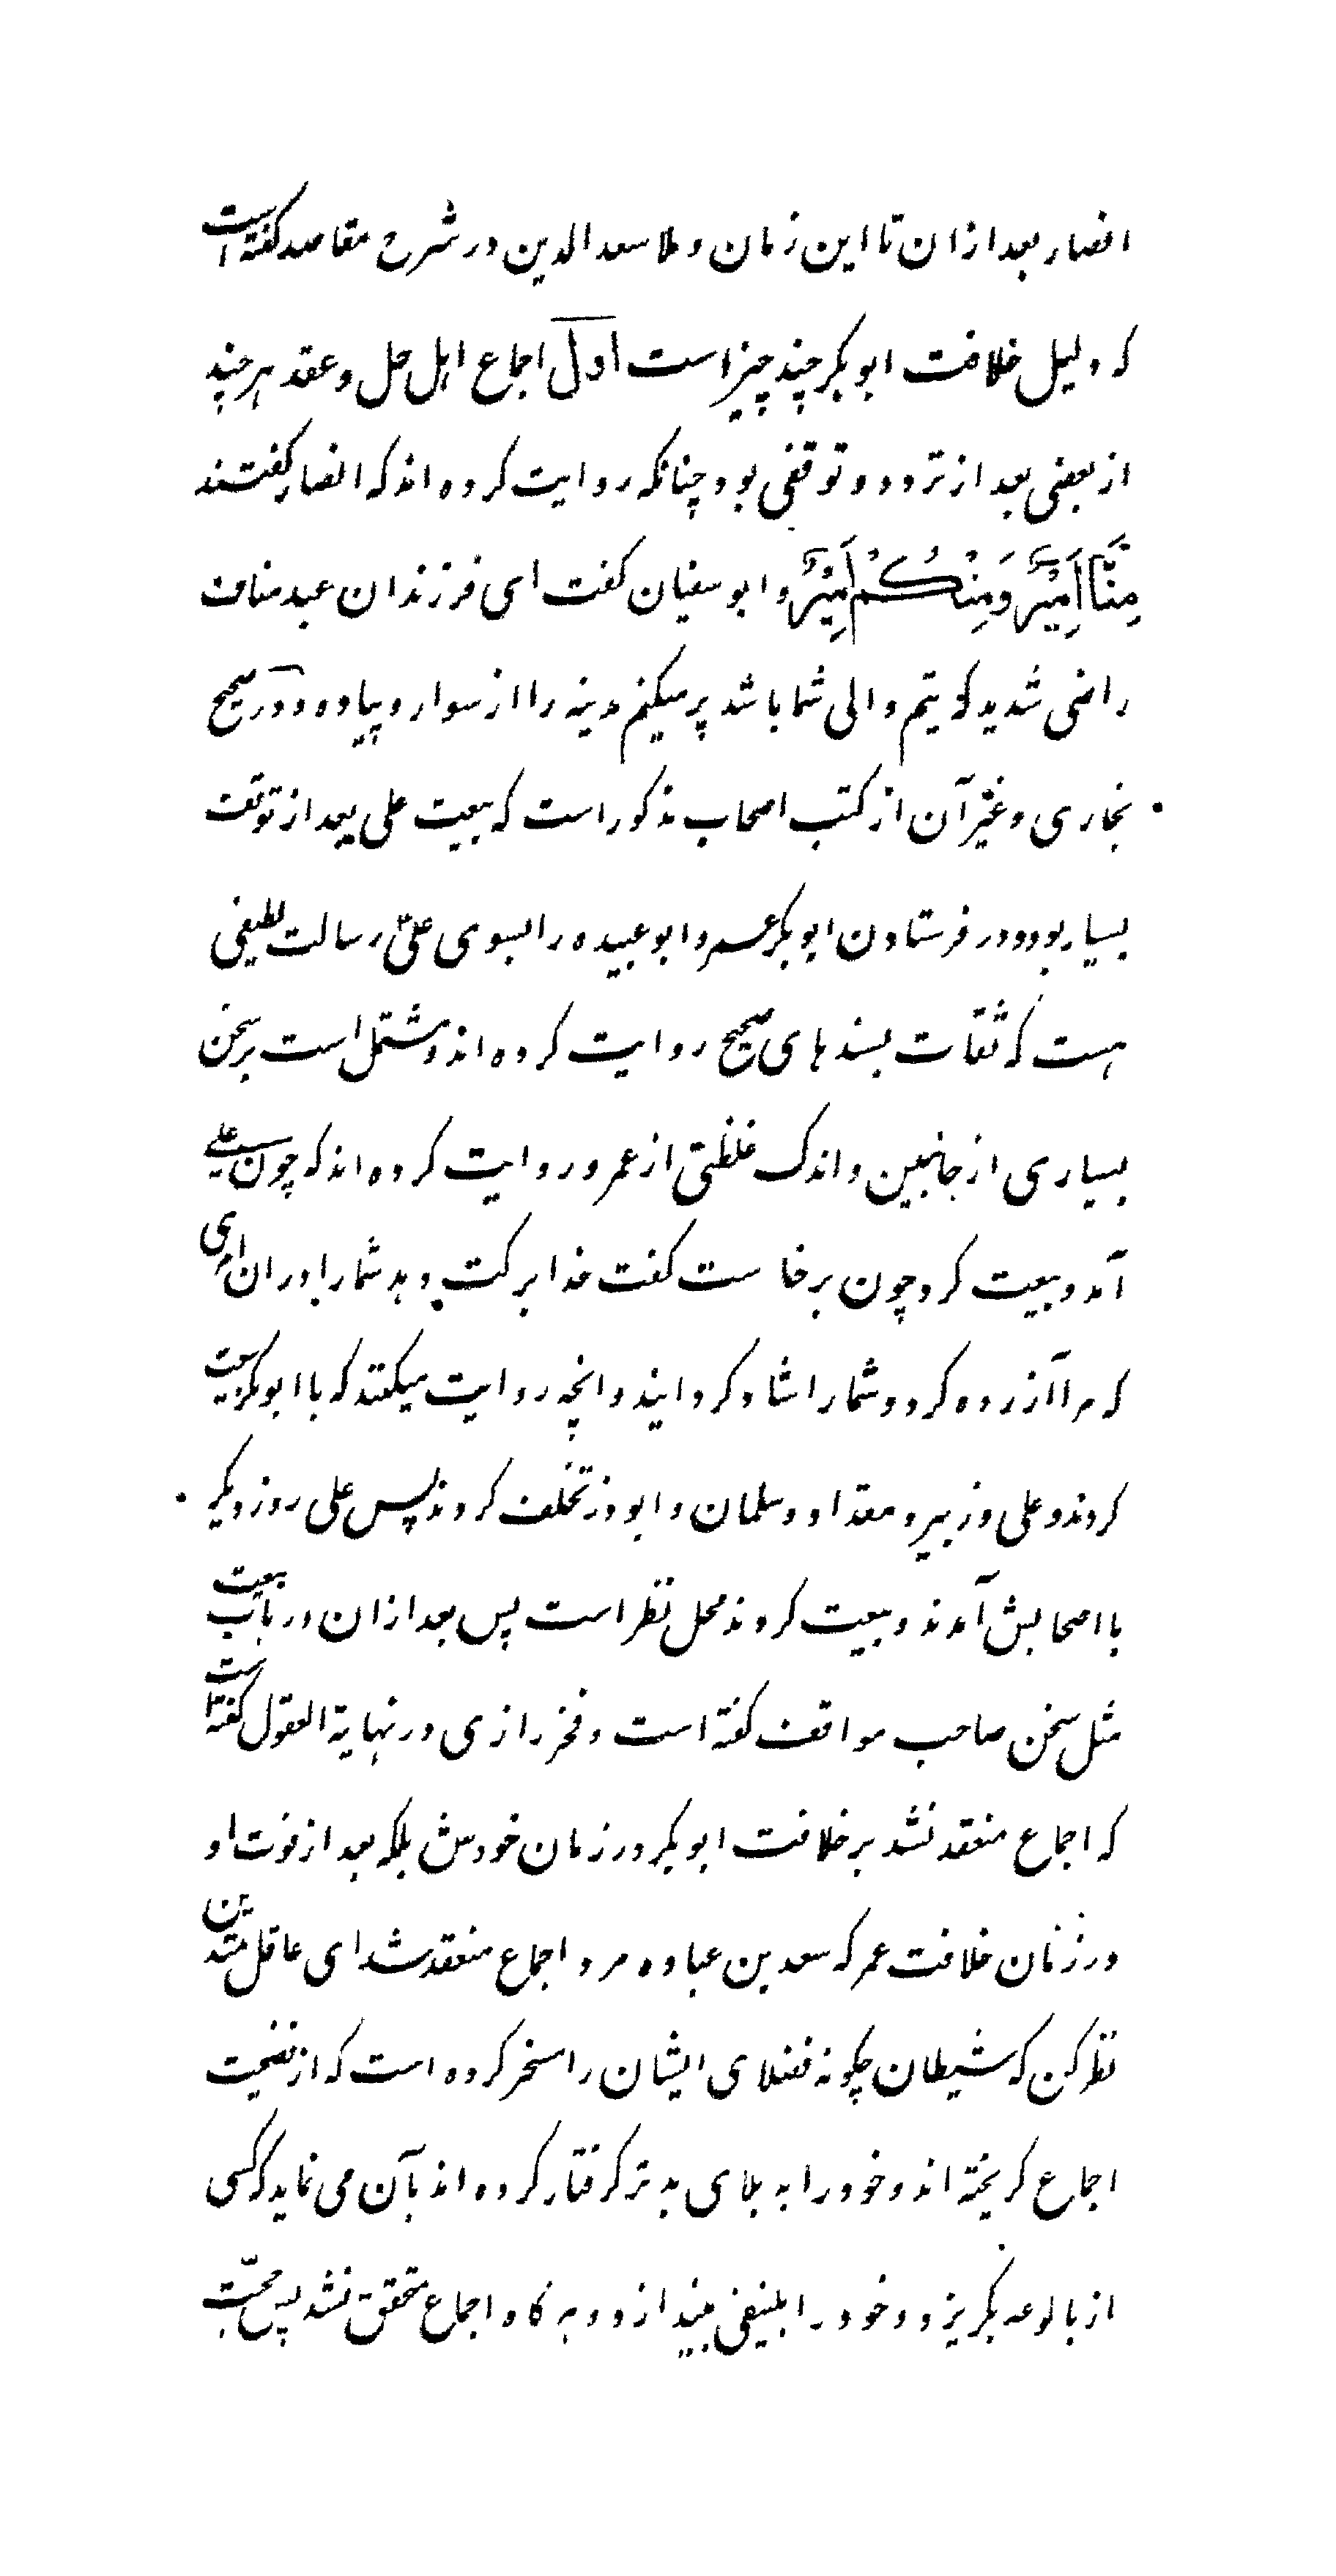 انصار بعد ازان تا این زمان و ملا سعد الدین در شرح مقاصد گفته است
که دلیل خلافت ابوبکر چند چیز است اول اجماع اهل حل و عقد هر چند
از بعضی بعد از تردد و توقفی بود چنانکه روایت کرده اند که انصار گفتند
مِنَّا اَمِیْرٌ وَمِنْکُمْ اَمِیْرٌ و ابو سفیان گفت ای فرزندان عبد مناف
راضی شدید که تیم والی شما باشد پر میکنم مدینه را از سوار و پیاده و در صحیح
بخاری و غیر آن از کتب اصحاب مذکور است که بیعت علی بعد از توقف
بسیار بود و در فرستادن ابوبکر عمر و ابو عبیده را بسوی علی رسالت لطیفی
هست که ثقات بسندهای صحیح روایت کرده اند و مشتمل است بر سخن
بسیاری از جانبین و اندک غلظتی از عمر و روایت کرده اند که چون علی
آمد و بیعت کرد چون برخاست گفت خدا برکت دهد شما را در ان امری
که مرا آزرده کرد و شما را شاد گردانید و انچه روایت میکنند که با ابوبکر بیعت
کردند و علی و زبیر و مقداد و سلمان و ابوذر تخلف کردند پس علی روز دیگر
با اصحابش آمدند و بیعت کردند محل نظر است پس بعد ازان در باب بیعت
مثل سخن صاحب مواقف گفته است و فخر رازی در نهایة العقول گفته است
که اجماع منعقد نشد بر خلافت ابوبکر در زمان خودش بلکه بعد از فوت او
در زمان خلافت عمر که سعد بن عباده مرد اجماع منعقد شد ای عاقل متدین
نظر کن که شیطان چگونه فضلای ایشان را مسخر کرده است که از فضیحت
اجماع گریخته اند و خود را به بلای بدتر گرفتار کرده اند بآن می نماید که کسی
از بالوعه بگریزد و خود را بکنیفی بیندازد و هرگاه اجماع متحقق نشد پس بچه حجت